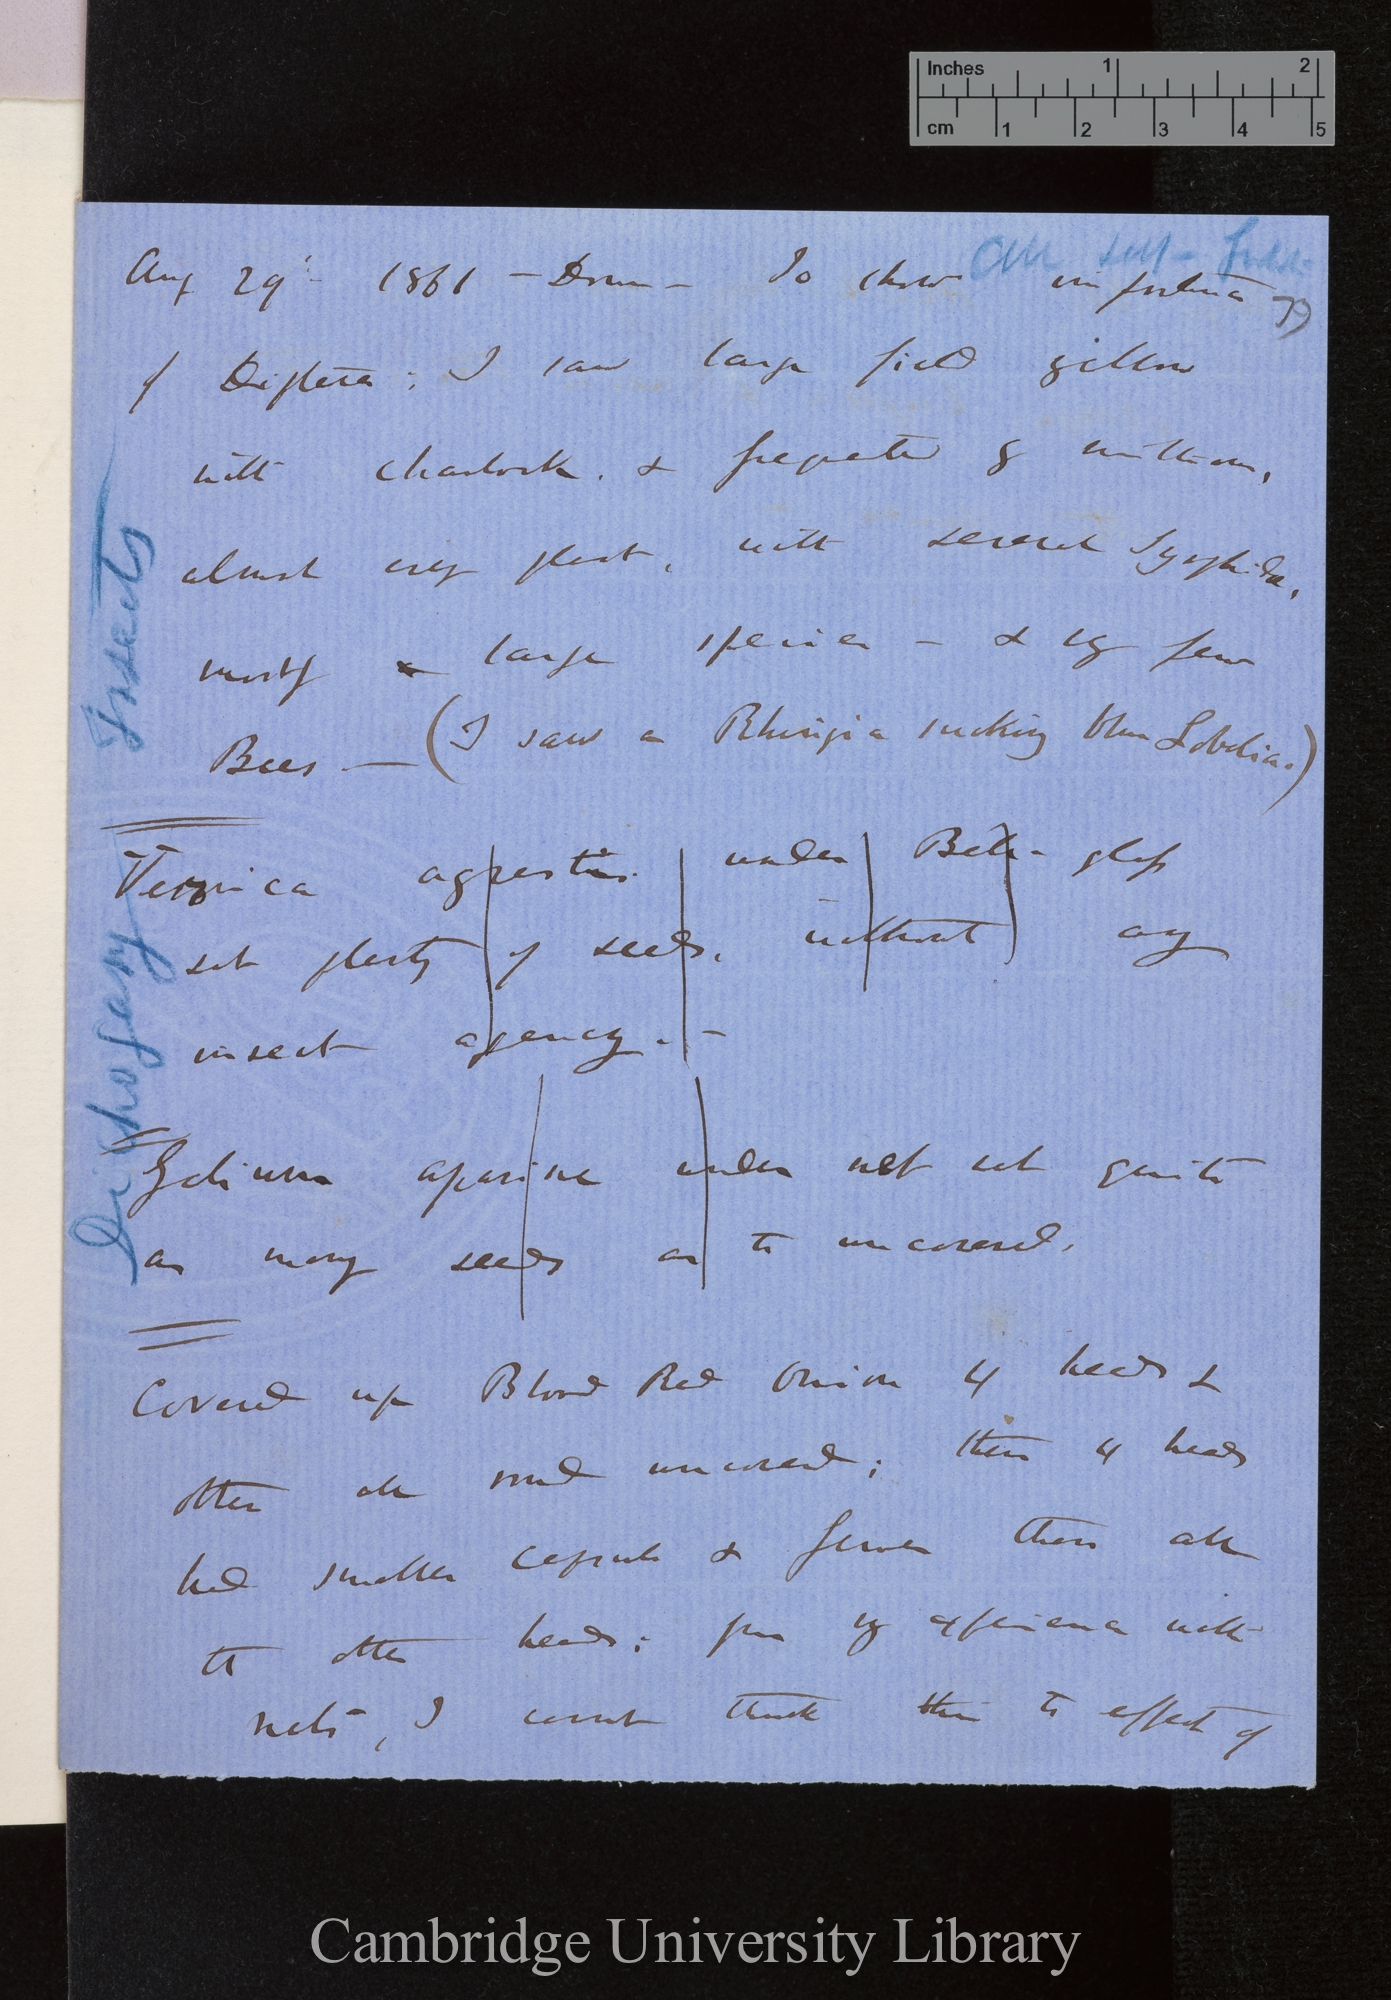 Inches 1 2
cm 1 2 3 4 5
All self-
79
Aug 29th 1861 — Down — To show importance
of Diptera; I saw large field yellow
with charlock, & frequented by millions,
almost every plant, with several Syrphidæ,
mostly large species — & very few
Bees — (I saw a Rhingia sucking blue Lobelia.)
Insects
Dichogamy
Veronica agrestis under Bell-glass
set plenty of seeds, without any
insect agency. —
Galium aparine under net set quite
as many seeds as the uncovered.
Covered up Blood Red Onion 4 heads &
other all round uncovered; these 4 heads
had smaller capsules & fewer than all
the other heads; from my experience with
nets, I cannot think this the effect of
Cambridge University Library